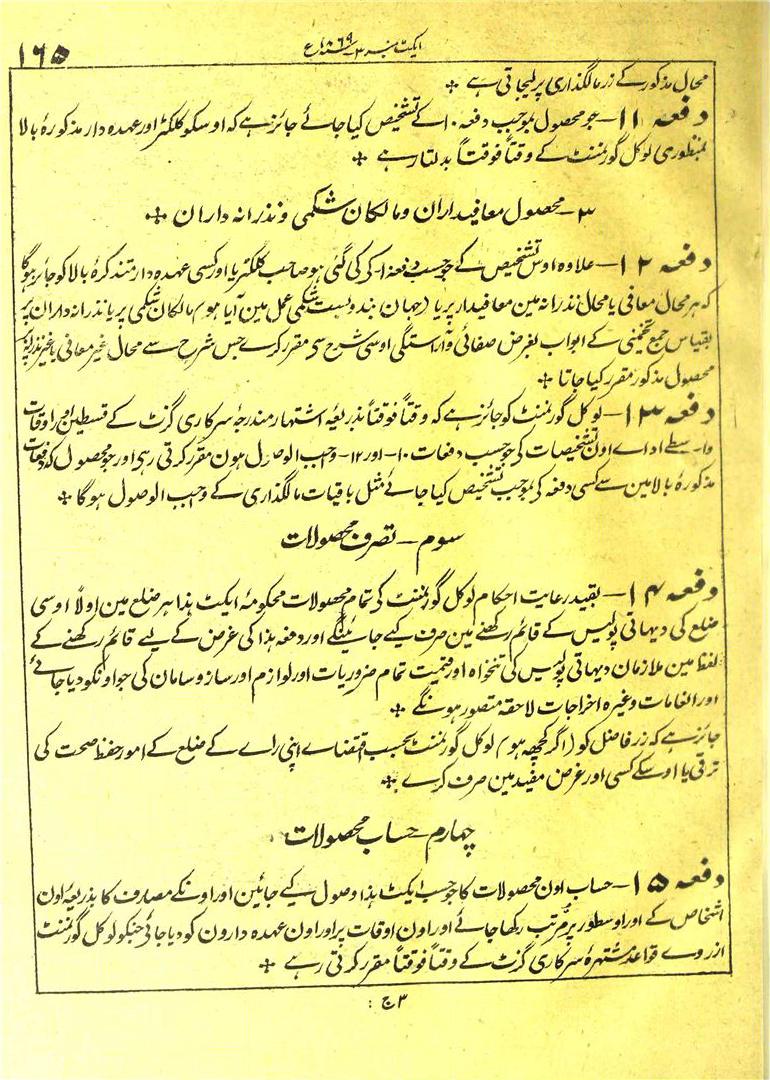 ۱۶۵
ایکٹ نمبر ۳ سنہ ۱۸۶۹ع
محال مذکور کے زر مالگذاری پر لیجاتی ہے +
دفعہ ۱۱ – جو محصول بموجب دفعہ ۱۰ کے تشخیص کیا جائے جائز ہے کہ اوسکو کلکٹر اور عہدہ دار مذکورۂ بالا
بمنظوری لوکل گورنمنٹ کے وقتاً فوقتاً بدلتا رہے +
۳ – محصول معافیداران و مالکان شکمی و نذرانہ داران +
دفعہ ۱۲ – علاوہ اوس تشخیص کے جو حسب دفعہ ۱۰ کی گئی ہو صاحب کلکٹر یا اور کسی عہدہ دار متذکرۂ بالا کو جائز ہوگا
کہ ہر محال معافی یا محال نذرانہ مین معافیدار پر یا (جہان بندوبست شکمی عمل مین آیا ہو) مالکان شکمی پر یا نذرانہ داران پر
بقیاس جمع تخمینی کے ابواب بغرض صفائی و آراستگی اوسی شرح سے مقرر کرے جس شرح سے محال غیر معافی یا غیر نذرانہ پر
محصول مذکور مقرر کیا جاتا +
دفعہ ۱۳ – لوکل گورنمنٹ کو جائز ہے کہ وقتاً فوقتاً بذریعۂ اشتہار مندرجۂ سرکاری گزٹ کے قسطین اور اوقات
واسطے اداے اون تشخیصات کی جو حسب دفعات ۱۰ – اور ۱۲ – واجب الوصول ہون مقرر کرتی رہی اور جو محصول کہ دفعات
مذکورۂ بالا مین سے کسی دفعہ کی بموجب تشخیص کیا جائے مثل باقیات مالگذاری کے واجب الوصول ہوگا +
سوم – تصرف محصولات
دفعہ ۱۴ – بقید رعایت احکام لوکل گورنمنٹ کی تمام محصولات محکومۂ ایکٹ ہذا ہر ضلع مین اولاً اوسی
ضلع کی دیہاتی پولیس کے قائم رکھنے مین صرف کیے جائینگے اور دفعہ ہذا کی غرض کے لیے قائم رکھنے کے
لفظ مین ملازمان دیہاتی پولیس کی تنخواہ اور قیمت تمام ضروریات اور لوازم اور ساز و سامان کی جو اونکو دیا جائے
اور انعامات وغیرہ اخراجات لاحقہ متصور ہونگے +
جائز ہے کہ زر فاضل کو (اگر کچھ ہو) لوکل گورنمنٹ بحسب اقتضاے اپنی راے کے ضلع کے امور حفظ صحت کی
ترقی یا اوسکے کسی اور غرض مفید مین صرف کرے +
چہارم – حساب محصولات
دفعہ ۱۵ – حساب اون محصولات کا جو حسب ایکٹ ہذا وصول کیے جائین اور اونکے مصارف کا بذریعہ اون
اشخاص کے اور اوسطور پر مرتب رکھا جائے اور اون اوقات پر اور اون عہدہ دارون کو دیا جائی جنکو لوکل گورنمنٹ
از روے قواعد مشتہرۂ سرکاری گزٹ کے وقتاً فوقتاً مقرر کرتی رہے +
۳ ج :